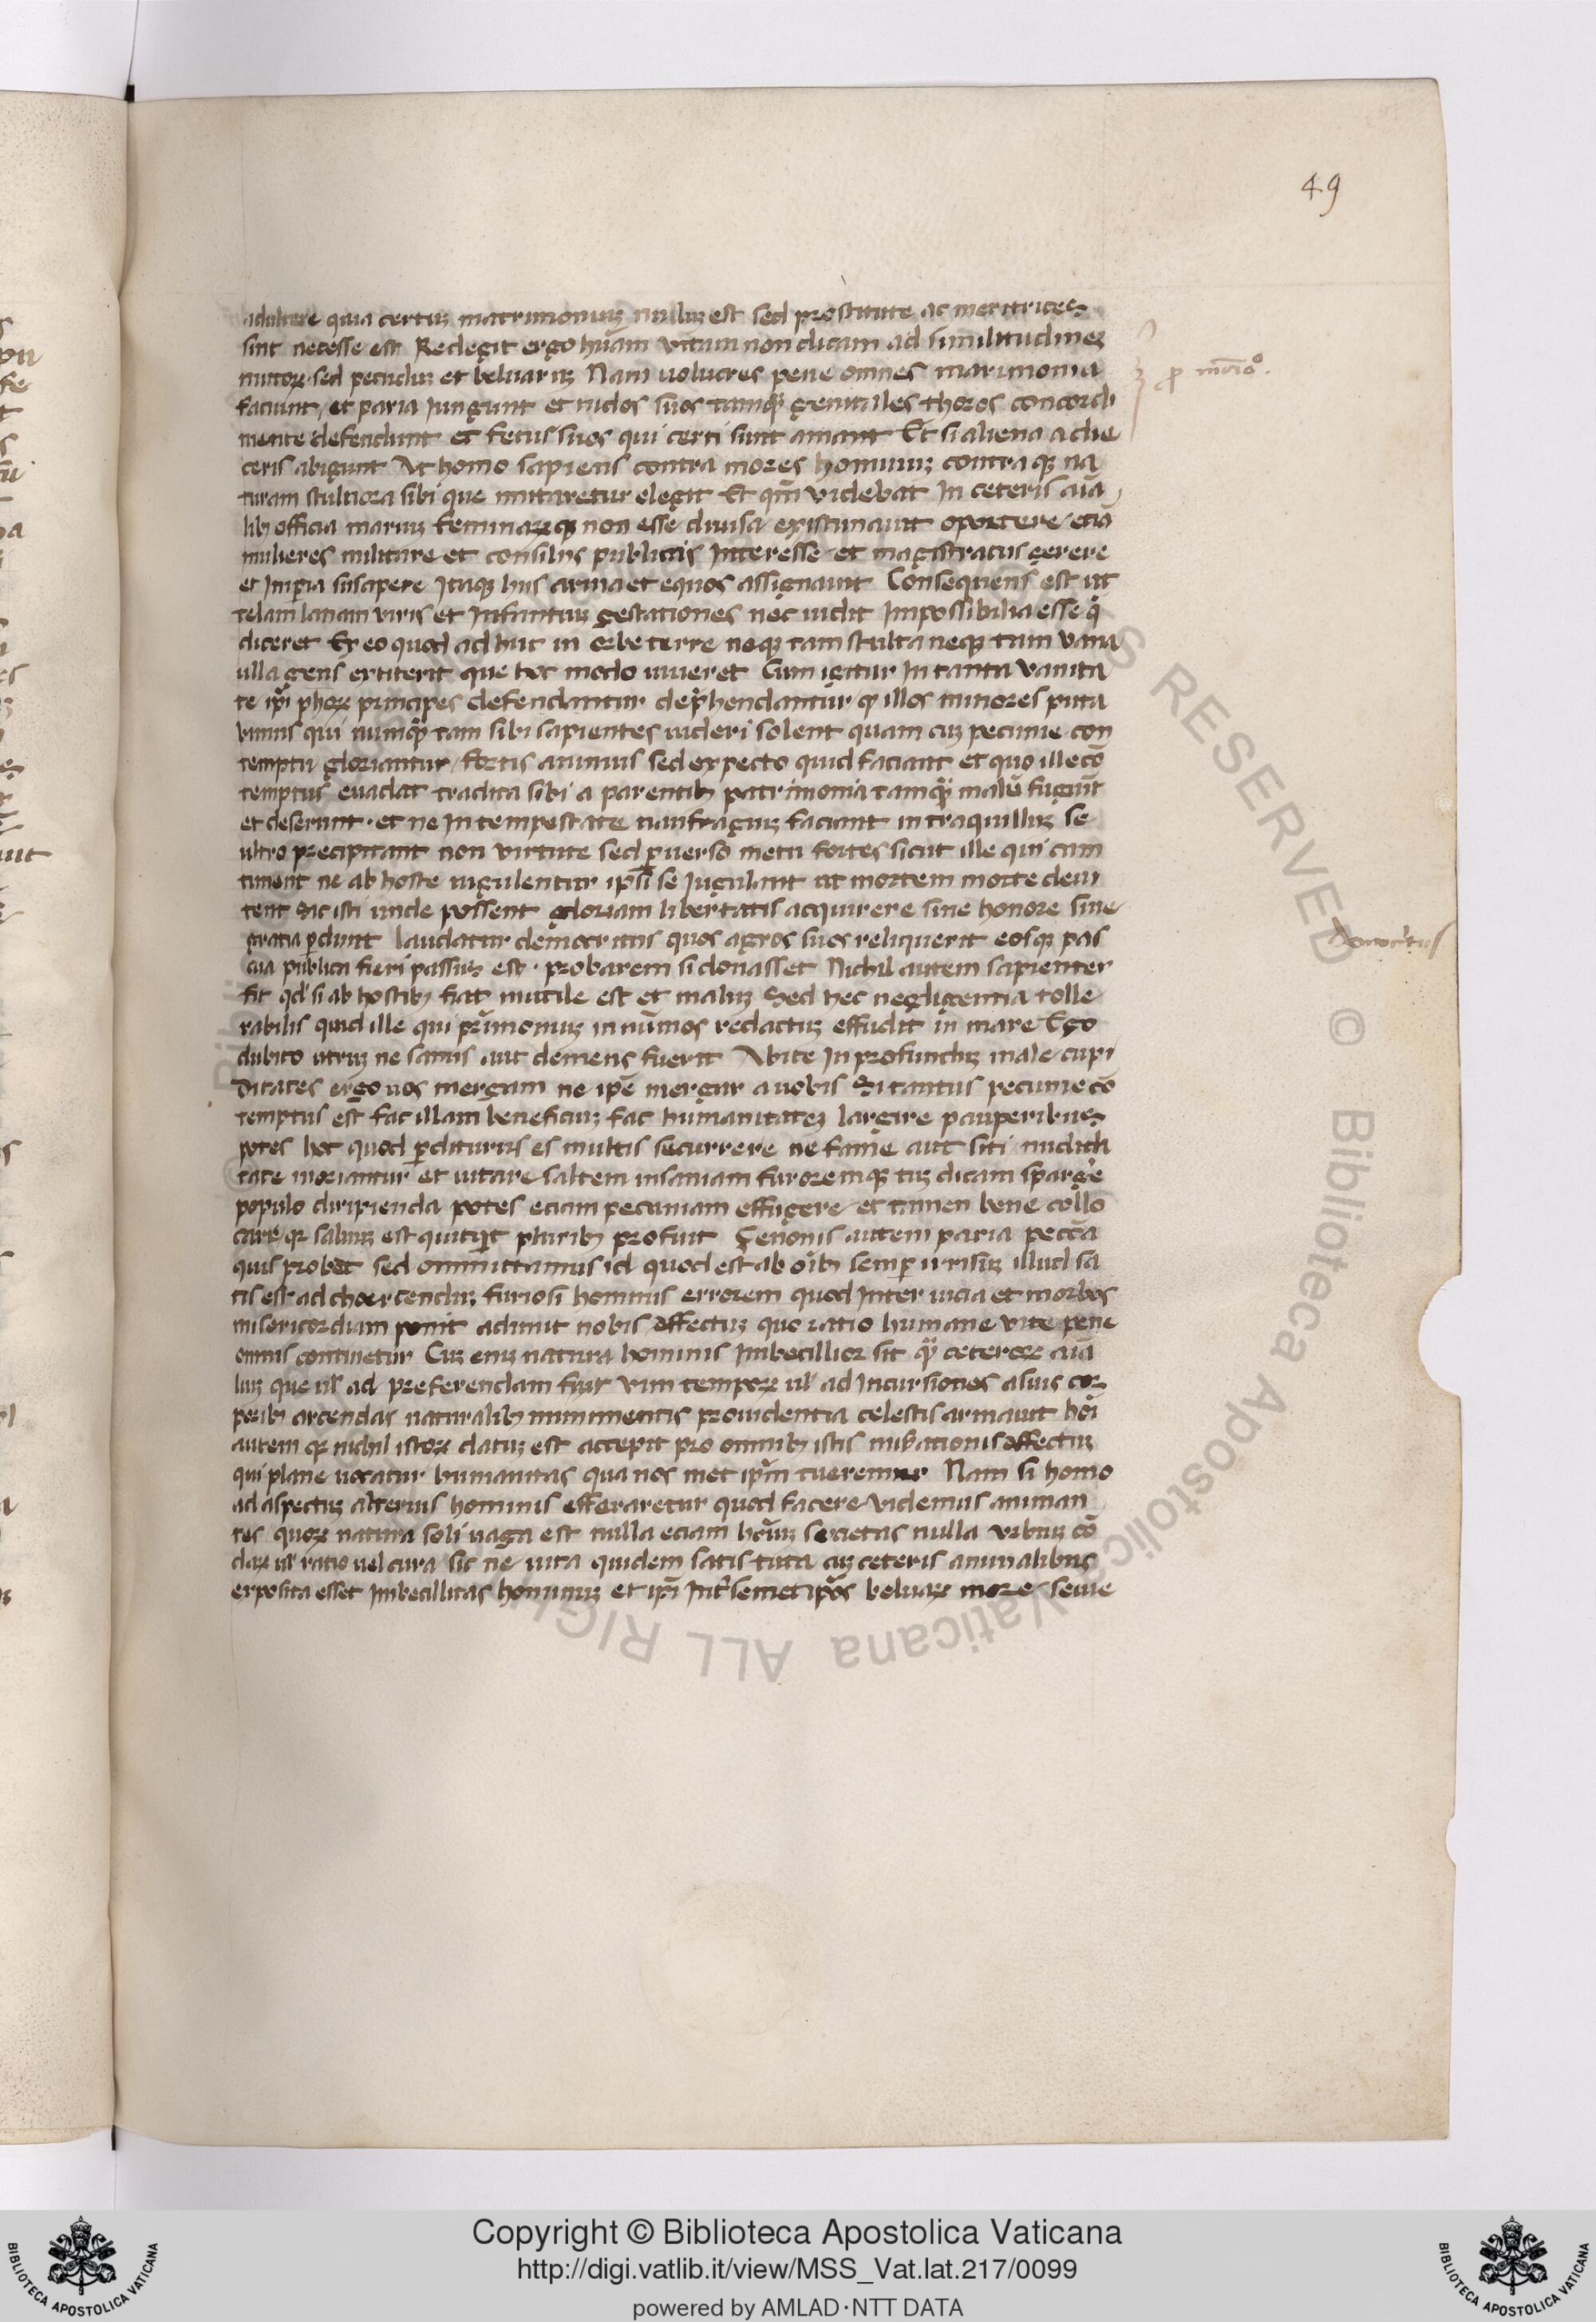 49
adultere quia certuz matrimoniuz nulluz est sed prostitute ac meritrices
sint necesse est Redegit ergo huãm vitam non dicam ad similitudinez
mutorꝝ sed pecuduz et beluaruz Nam uolucres pene omnes matrimonia
faciunt et paria Iungunt et nidos suos tamqͣ genitales thoros concordi
mente defendunt et fetus suos qui certi sunt amant Et si aliena adie
ceris abigunt At homo sapiens contra mores hominuz contraqꝫ na
turam stultiora sibi que imitaretur elegit Et qm̃ videbat In ceteris aĩa
libꝫ officia mariuz feminarꝝqꝫ non esse diuisa existimauit oportere etiã
mulieres militare et consiliis publicis Interesse et magistratus gerere
et Imꝑia suscipere Itaqꝫ hiis arma et equos assignauit Consequens est ut
telam lanam viris et Infantuz gestationes nec uidit Impossibilia esse q̃
diceret Ex eo quod ad huc in orbe terre neqꝫ tam stulta neqꝫ tam vana
ulla gens extiterit que hoc modo uiueret Cum igitur In tanta vanita
te ip̃i ph̃orꝝ principes defendantur dep̃hendantur qͥ illos minores puta
bimus qui numqͣ tam sibi sapientes uideri solent quam cuz pecunie con
temptu gloriantur fortis animus sed expecto quid faciant et quo ille cõ
temptus euadat tradita sibi a parentibꝫ patrimonia tamqͣ malũ fugiũt
et deserunt et ne In tempestate naufragiuz faciant in traquilluz se
ultro precipitant non virtute sed ꝑuerso metu fortes sicut ille qui cum
timent ne ab hoste iugulentur ip̃si se Iugulant ut mortem morte deui
tent Sic isti unde possent gloriam libertatis acquirere sine honore sine
gratia ꝑdunt laudatur democritus quos agros suos reliquerit eosqꝫ pas
cua publica fieri passuz est probarem si donasset Nichil autem sapienter
fit qd' si ab hostibꝫ fiat inutile est et maluz Sed hec negligentia tolle
rabilis quid ille qui pr̃imoniuz in nũmos redactuz effudit in mare Ego
dubito utruz ne sanus aut demens fuerit Abite In profunduz male cupi
ditates ergo uos mergam ne ip̃e mergar a uobis Si tantus pecunie cõ
temptus est fac illam beneficiuz fac humanitatez largire pauperibus
potes hoc quod ꝑditurus es multis securrere ne fame aut siti nudita
tate moriantur et uitare saltem insaniam furoremqꝫ tuz dicam spargẽ
populo diripienda potes eciam pecuniam effugere et tamen bene collo
care qꝛ saluuz est quitqͥt pluribꝫ profuit Çenonis autem paria peccã
quis probet sed ommittamus id quod est ab oĩbꝫ semꝑ irrisuz illud sa
tis est ad choercenduz furiosi hominis errorem quod Inter uicia et morbos
misericordiam ponit adimit nobis affectuz quo ratio humane vite pene
omnis continetur Cuz enuz natura hominis Imbecillior sit qͣ ceterorꝝ aĩa
liuz que ul' ad preferendam vim temporꝝ ul' ad Incursiones a suis cor
poribꝫ arcendas naturalibꝫ munimentis prouidentia celestis armauit hõi
autem qꝛ nichil istorꝝ datuz est accepit pro omnibꝫ istis affectuz
qui plane uocatur humanitas qua nos met ip̃m tueremur Nam si homo
ad aspectuz alterius hominis efferaretur quod facere videmus animan
tes quorꝝ natura soli uaga est nulla eciam hõĩuz societas nulla vrbiuz cõ
darꝝ ul' ratio uel cura sic ne uita quidem satis tuta cuz ceteris animalibus
exposita esset Imbecillitas hominuz et ip̃i Int̃ semetip̃os beluarꝝ more seuie
Democritus